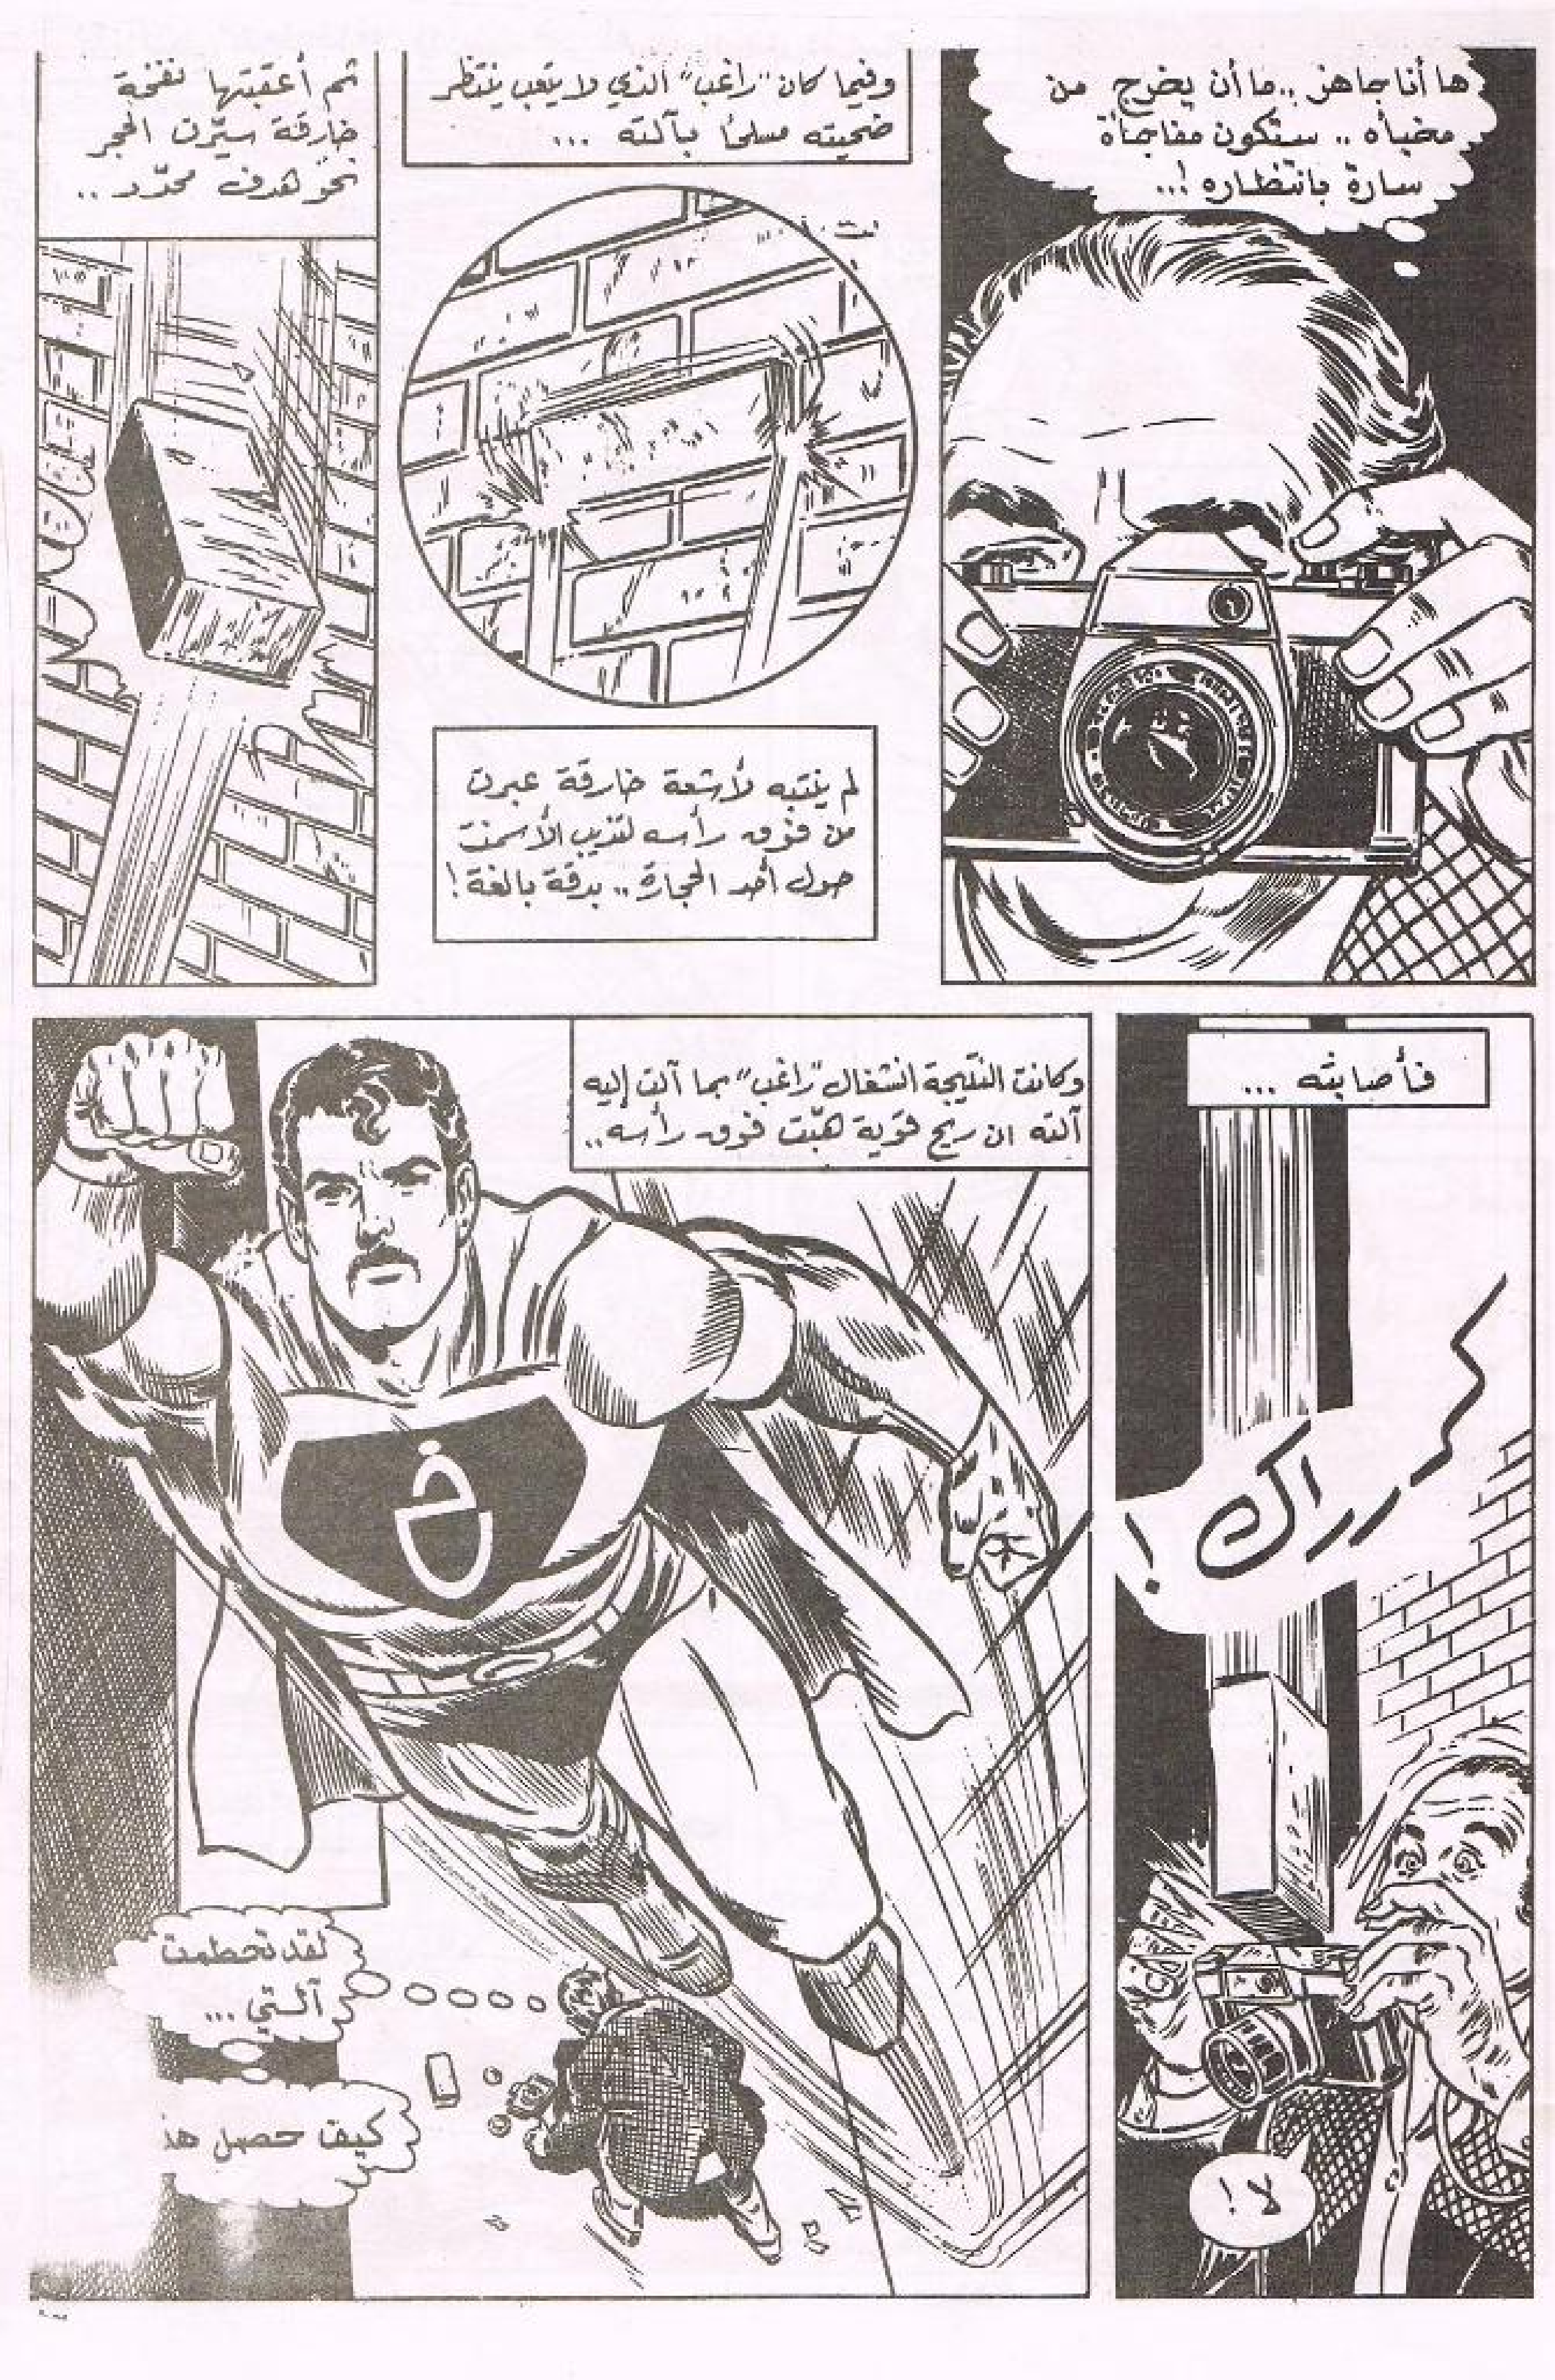 ها أنا جاهز .. ما أن يخرج من
مخبأه .. ستكون مفاجأة
سارة بانتظاره !..
وفيما كان "راغب" الذي لا يتعب ينتظر
ضحيته مسلحاً بآلته ...
لم ينتبه لأشعة خارقة عبرت
من فوق رأسه لتذيب الأسمنت
حول أحد الحجارة .. بدقة بالغة !
ثم أعقبتها نفخة
خارقة سيّرت الحجر
نحو هدف محدّد ..
فأصابته ...
كررراك !
لا !
وكانت النتيجة انشغال "راغب" بما آلت إليه
آلته ان ريح قوية هبّت فوق رأسه ..
ف
لقد تحطمت
آلتي ...
كيف حصل هذ